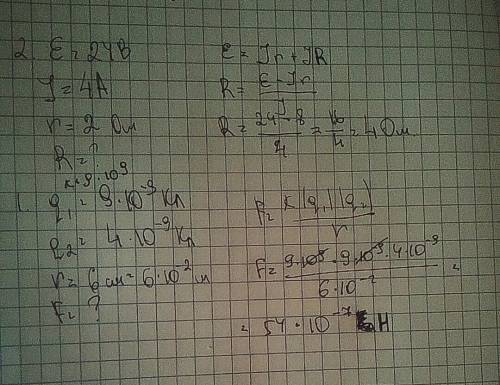 2. ℰ = 24В
J = 4А
r = 2 Ом
R = ?
ℰ = Jr + JR
R = (ℰ - Jr) / J
R = (24 - 8) / 4 = 16/4 = 4 Ом
k = 9 · 10⁹
1. q₁ = 9 · 10⁻⁹ Кл
q₂ = 4 · 10⁻⁹ Кл
r = 6 см = 6 · 10⁻² м
F = ?
F = k |q₁| |q₂| / r
F = 9 · 10⁹ · 9 · 10⁻⁹ · 4 · 10⁻⁹ / 6 · 10⁻² =
= 54 · 10⁻⁷ Н